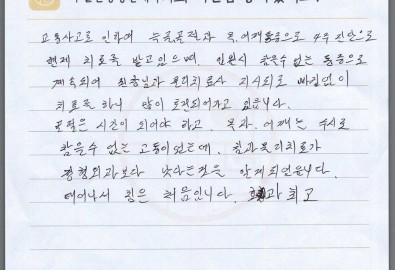 교통사고로 인하여 늑골골절과 목.어깨통증으로 4주 진단으로
현재 치료를 받고 있으며. 입원시 참을수 없는 통증으로
계속되어 원장님과 물리치료사 지시되로 빠짐없이
치료를 하니 많이 호전되어가고 있읍니다.
골절은 시간이 되어야 하고. 목과.어깨는 수시로
참을수 없는 고통이 있는데. 침과 물리치료가
정형외과보다 낫다는것을 알게되었읍니다.
태어나서 침은 처음입니다. 효과 최고